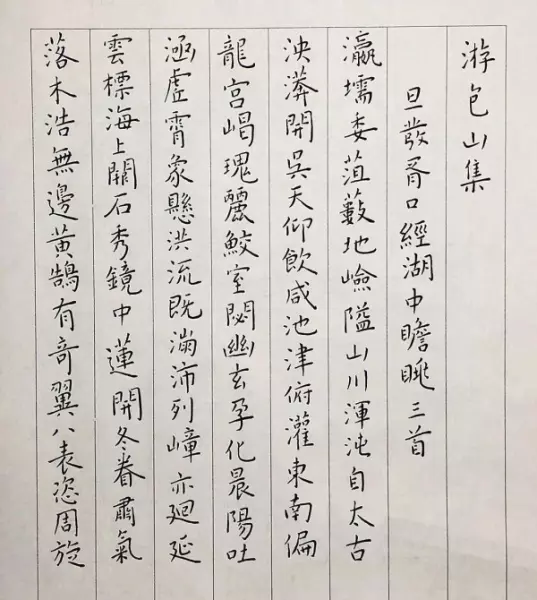 游包山集
旦發胥口經湖中瞻眺三首
瀛壖委菹藪地嶮隘山川渾沌自太古
泱漭開吳天仰飲咸池津俯灌東南偏
龍宮嵑瑰麗鮫室閟幽玄孕化晨陽吐
涵虛霄象懸洪流既滿沛列嶂亦廻延
雲標海上闕石秀鏡中蓮開冬眷肅氣
落木浩無邊黃鵠有奇翼八表恣周旋